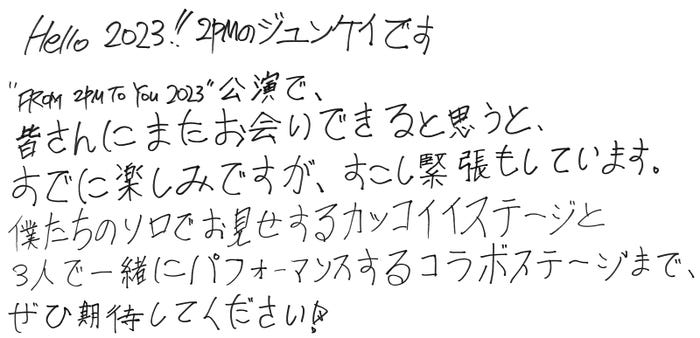 Hello 2023!! 2PMのジュンケイです
"FROM 2PM TO YOU 2023" 公演で、
皆さんにまたお会いできると思うと、
すでに楽しみですが、すこし緊張もしています。
僕たちのソロでお見せするカッコイイステージと
3人で一緒にパフォーマンスするコラボステージまで、
ぜひ期待してください!